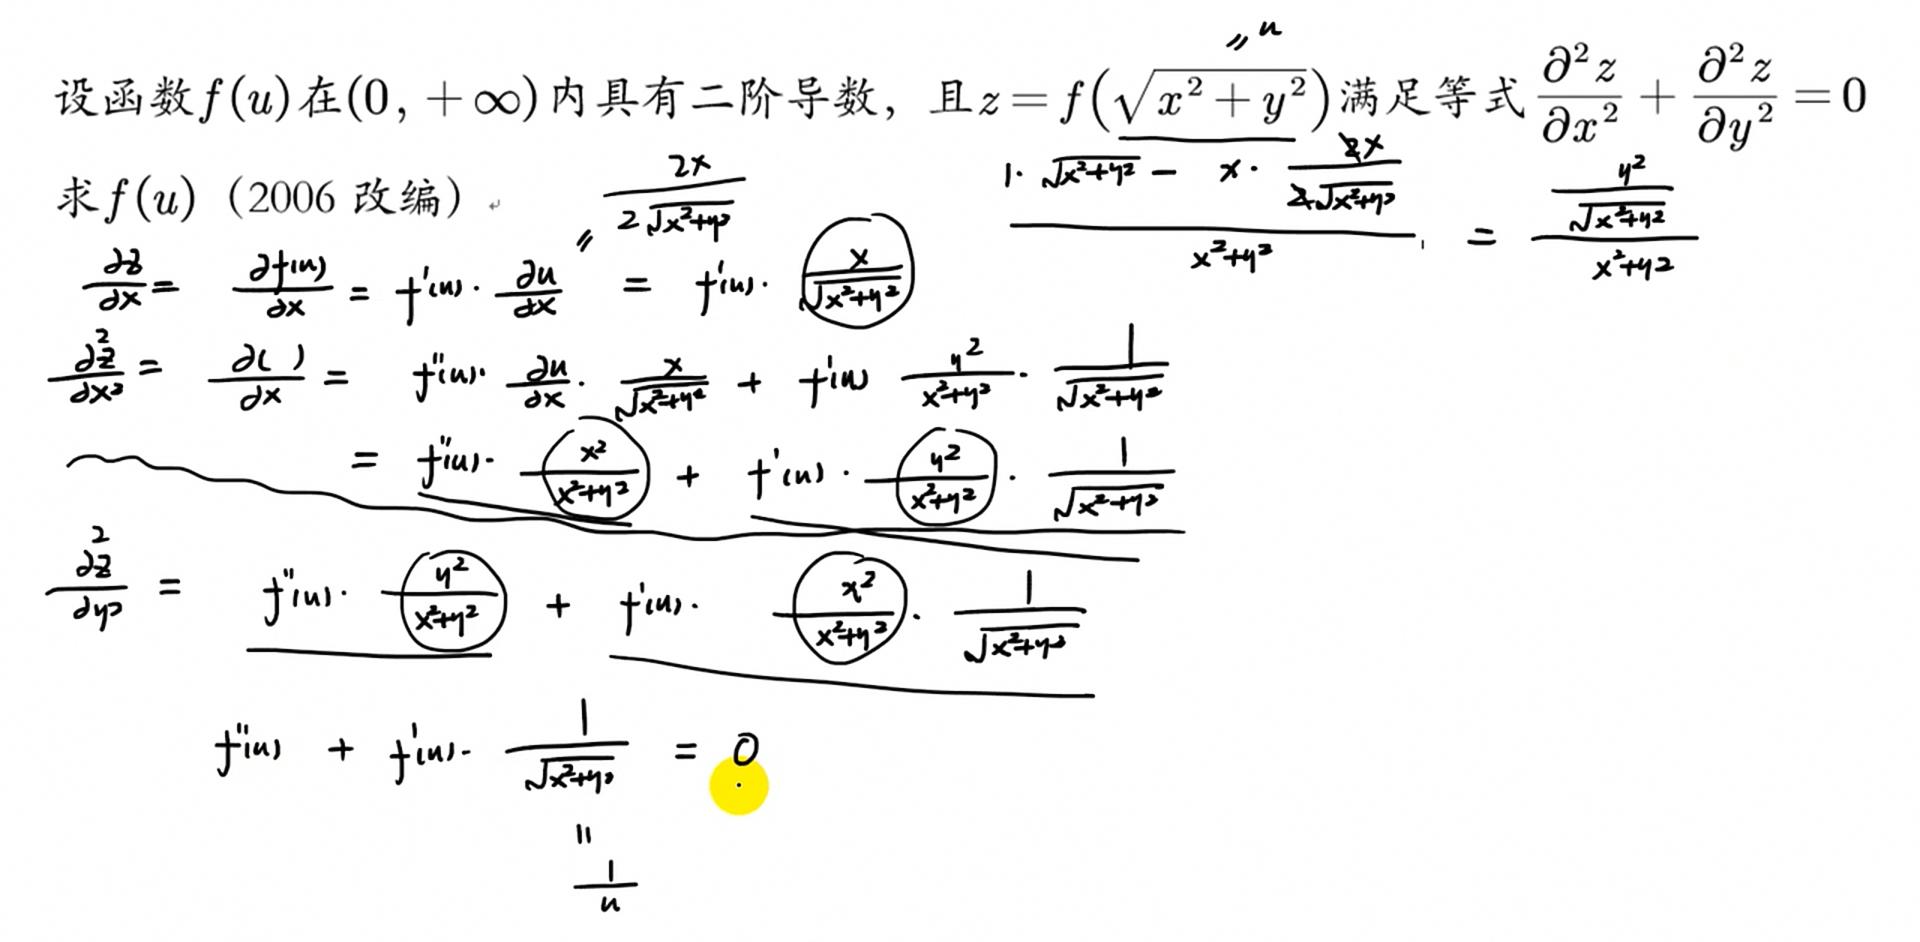 设函数f(u)在(0, +∞)内具有二阶导数，且z=f(√(x²+y²))满足等式 ∂²z/∂x² + ∂²z/∂y² = 0
〃u
求f(u)（2006 改编）
2x/(2√(x²+y²))
〃
(1·√(x²+y²) − x·2x/(2√(x²+y²)))/(x²+y²) = (y²/√(x²+y²))/(x²+y²)
∂z/∂x = ∂f(u)/∂x = f'(u)·∂u/∂x = f'(u)·x/√(x²+y²)
∂²z/∂x² = ∂( )/∂x = f''(u)·∂u/∂x·x/√(x²+y²) + f'(u) y²/(x²+y²)·1/√(x²+y²)
= f''(u)·x²/(x²+y²) + f'(u)·y²/(x²+y²)·1/√(x²+y²)
∂²z/∂y² = f''(u)·y²/(x²+y²) + f'(u)·x²/(x²+y²)·1/√(x²+y²)
f''(u) + f'(u)·1/√(x²+y²) = 0
〃
1/u